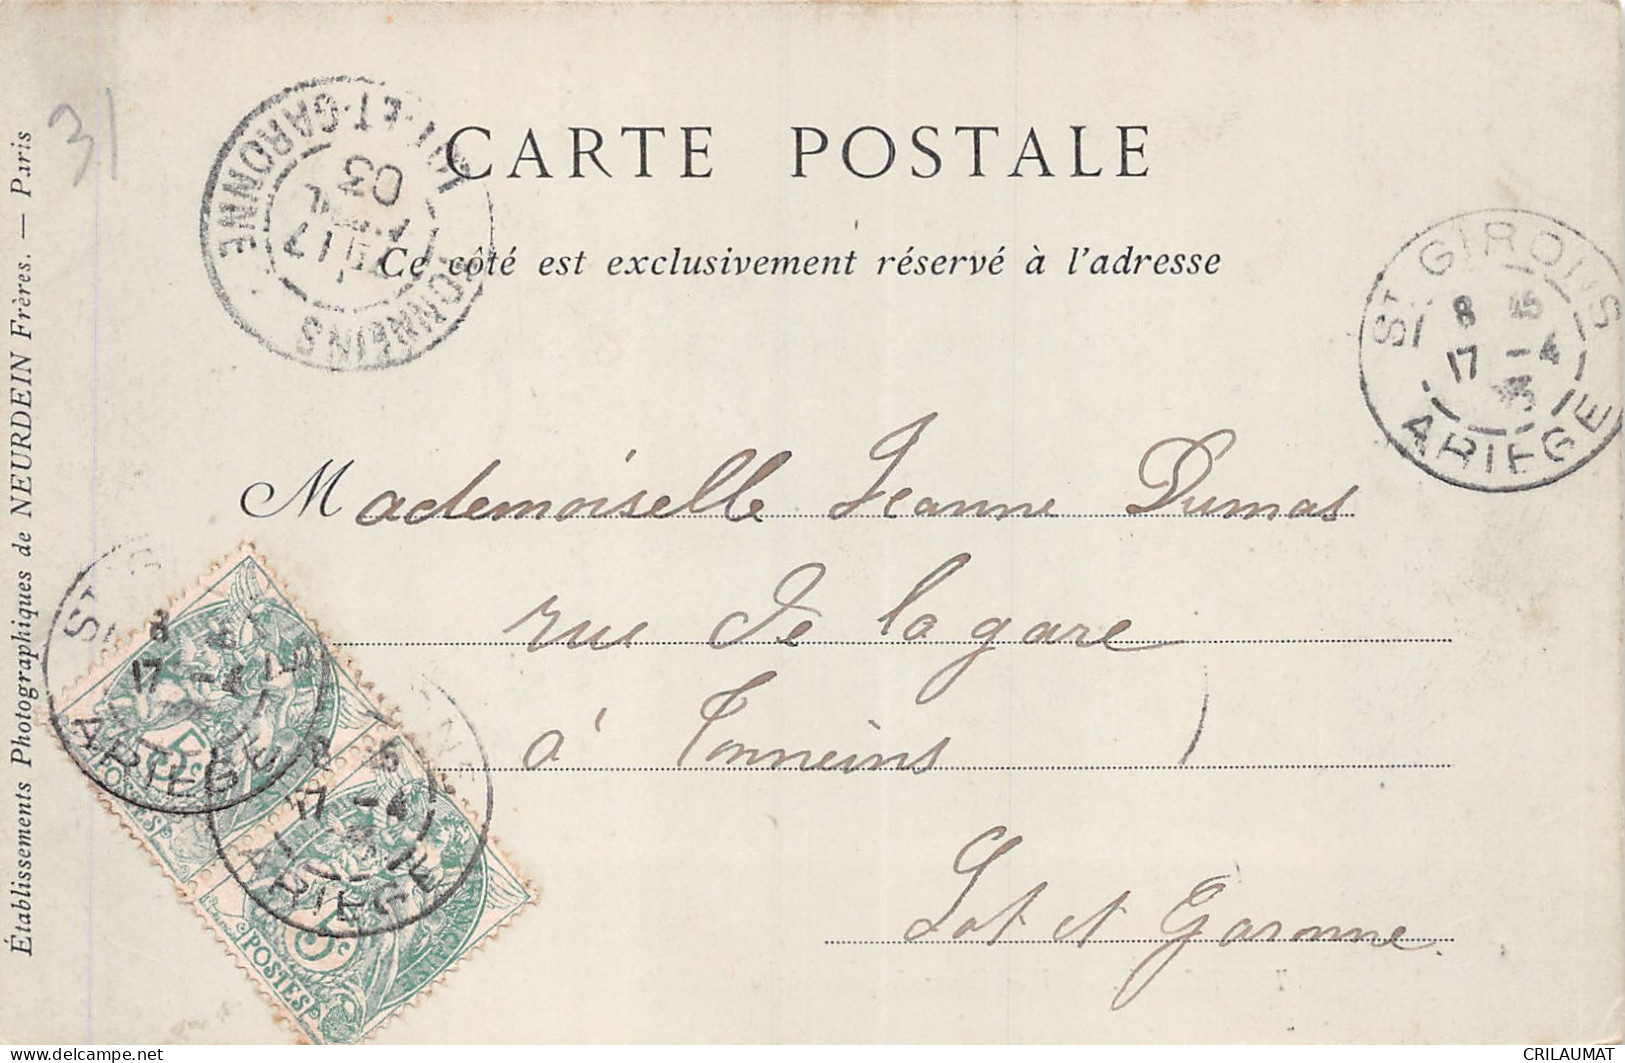 CARTE POSTALE
Ce côté est exclusivement réservé à l'adresse
Mademoiselle Jeanne Dumas
rue de la gare
à Tonneins
Lot et Garonne
Établissements Photographiques de NEURDEIN Frères. — Paris
31
TONNEINS
LOT-ET-GARONNE
17
03
ST GIRONS
8 45
17 -4
ARIEGE
ST
8
17 -4
ARIEGE
8
17 -4
ARIEGE
5c
POSTES
5c
POSTES
https://www.delcampe.net
CRILAUMAT